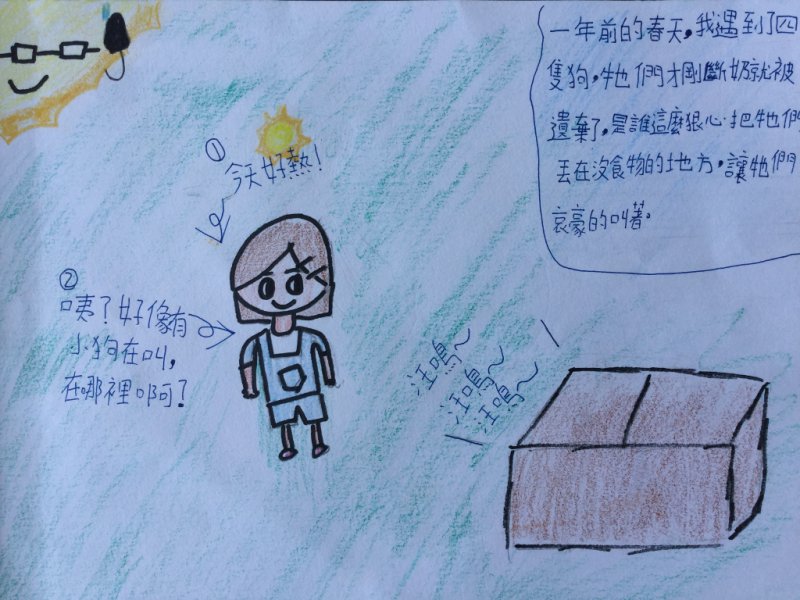 一年前的春天,我遇到了四
隻狗,牠們才剛斷奶就被
遺棄了,是誰這麼狠心把牠們
丟在沒食物的地方,讓牠們
哀豪的叫著。
①
今天好熱!
②
咦?好像有
小狗在叫,
在哪裡啊?
汪嗚~
汪嗚~
汪嗚~